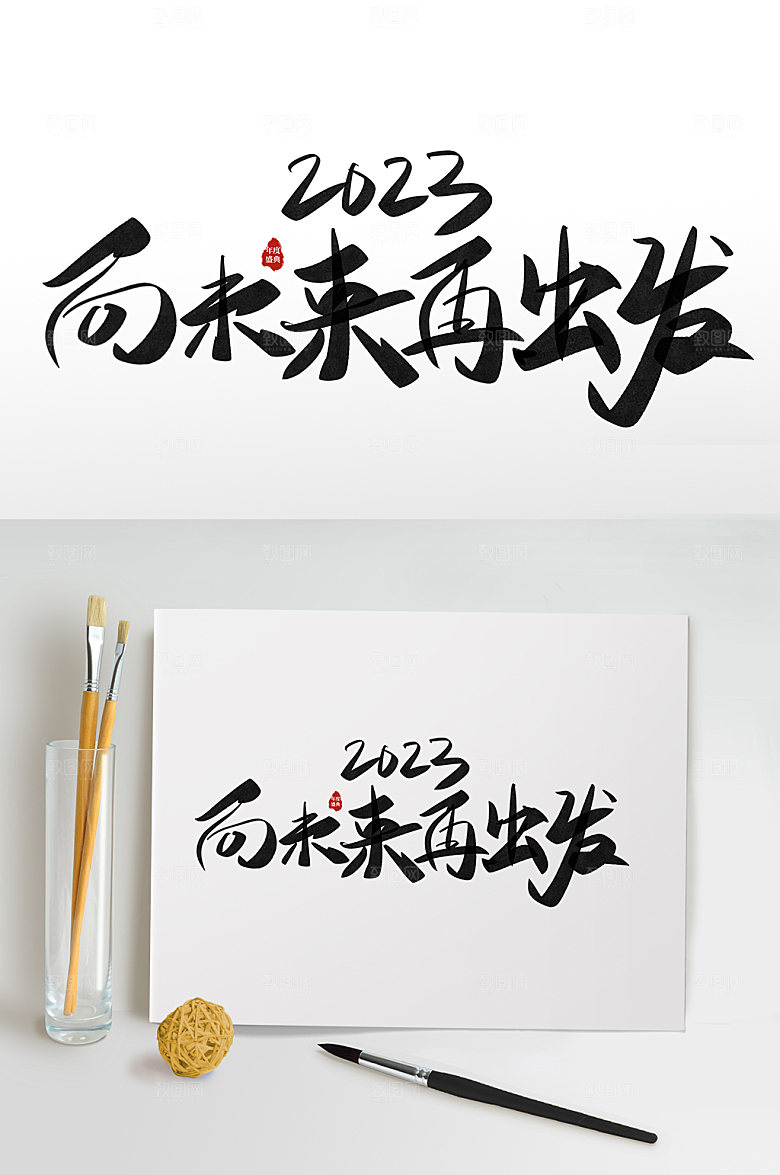 2023
年度
盛典
向未来再出发
2023
年度
盛典
向未来再出发
致图网